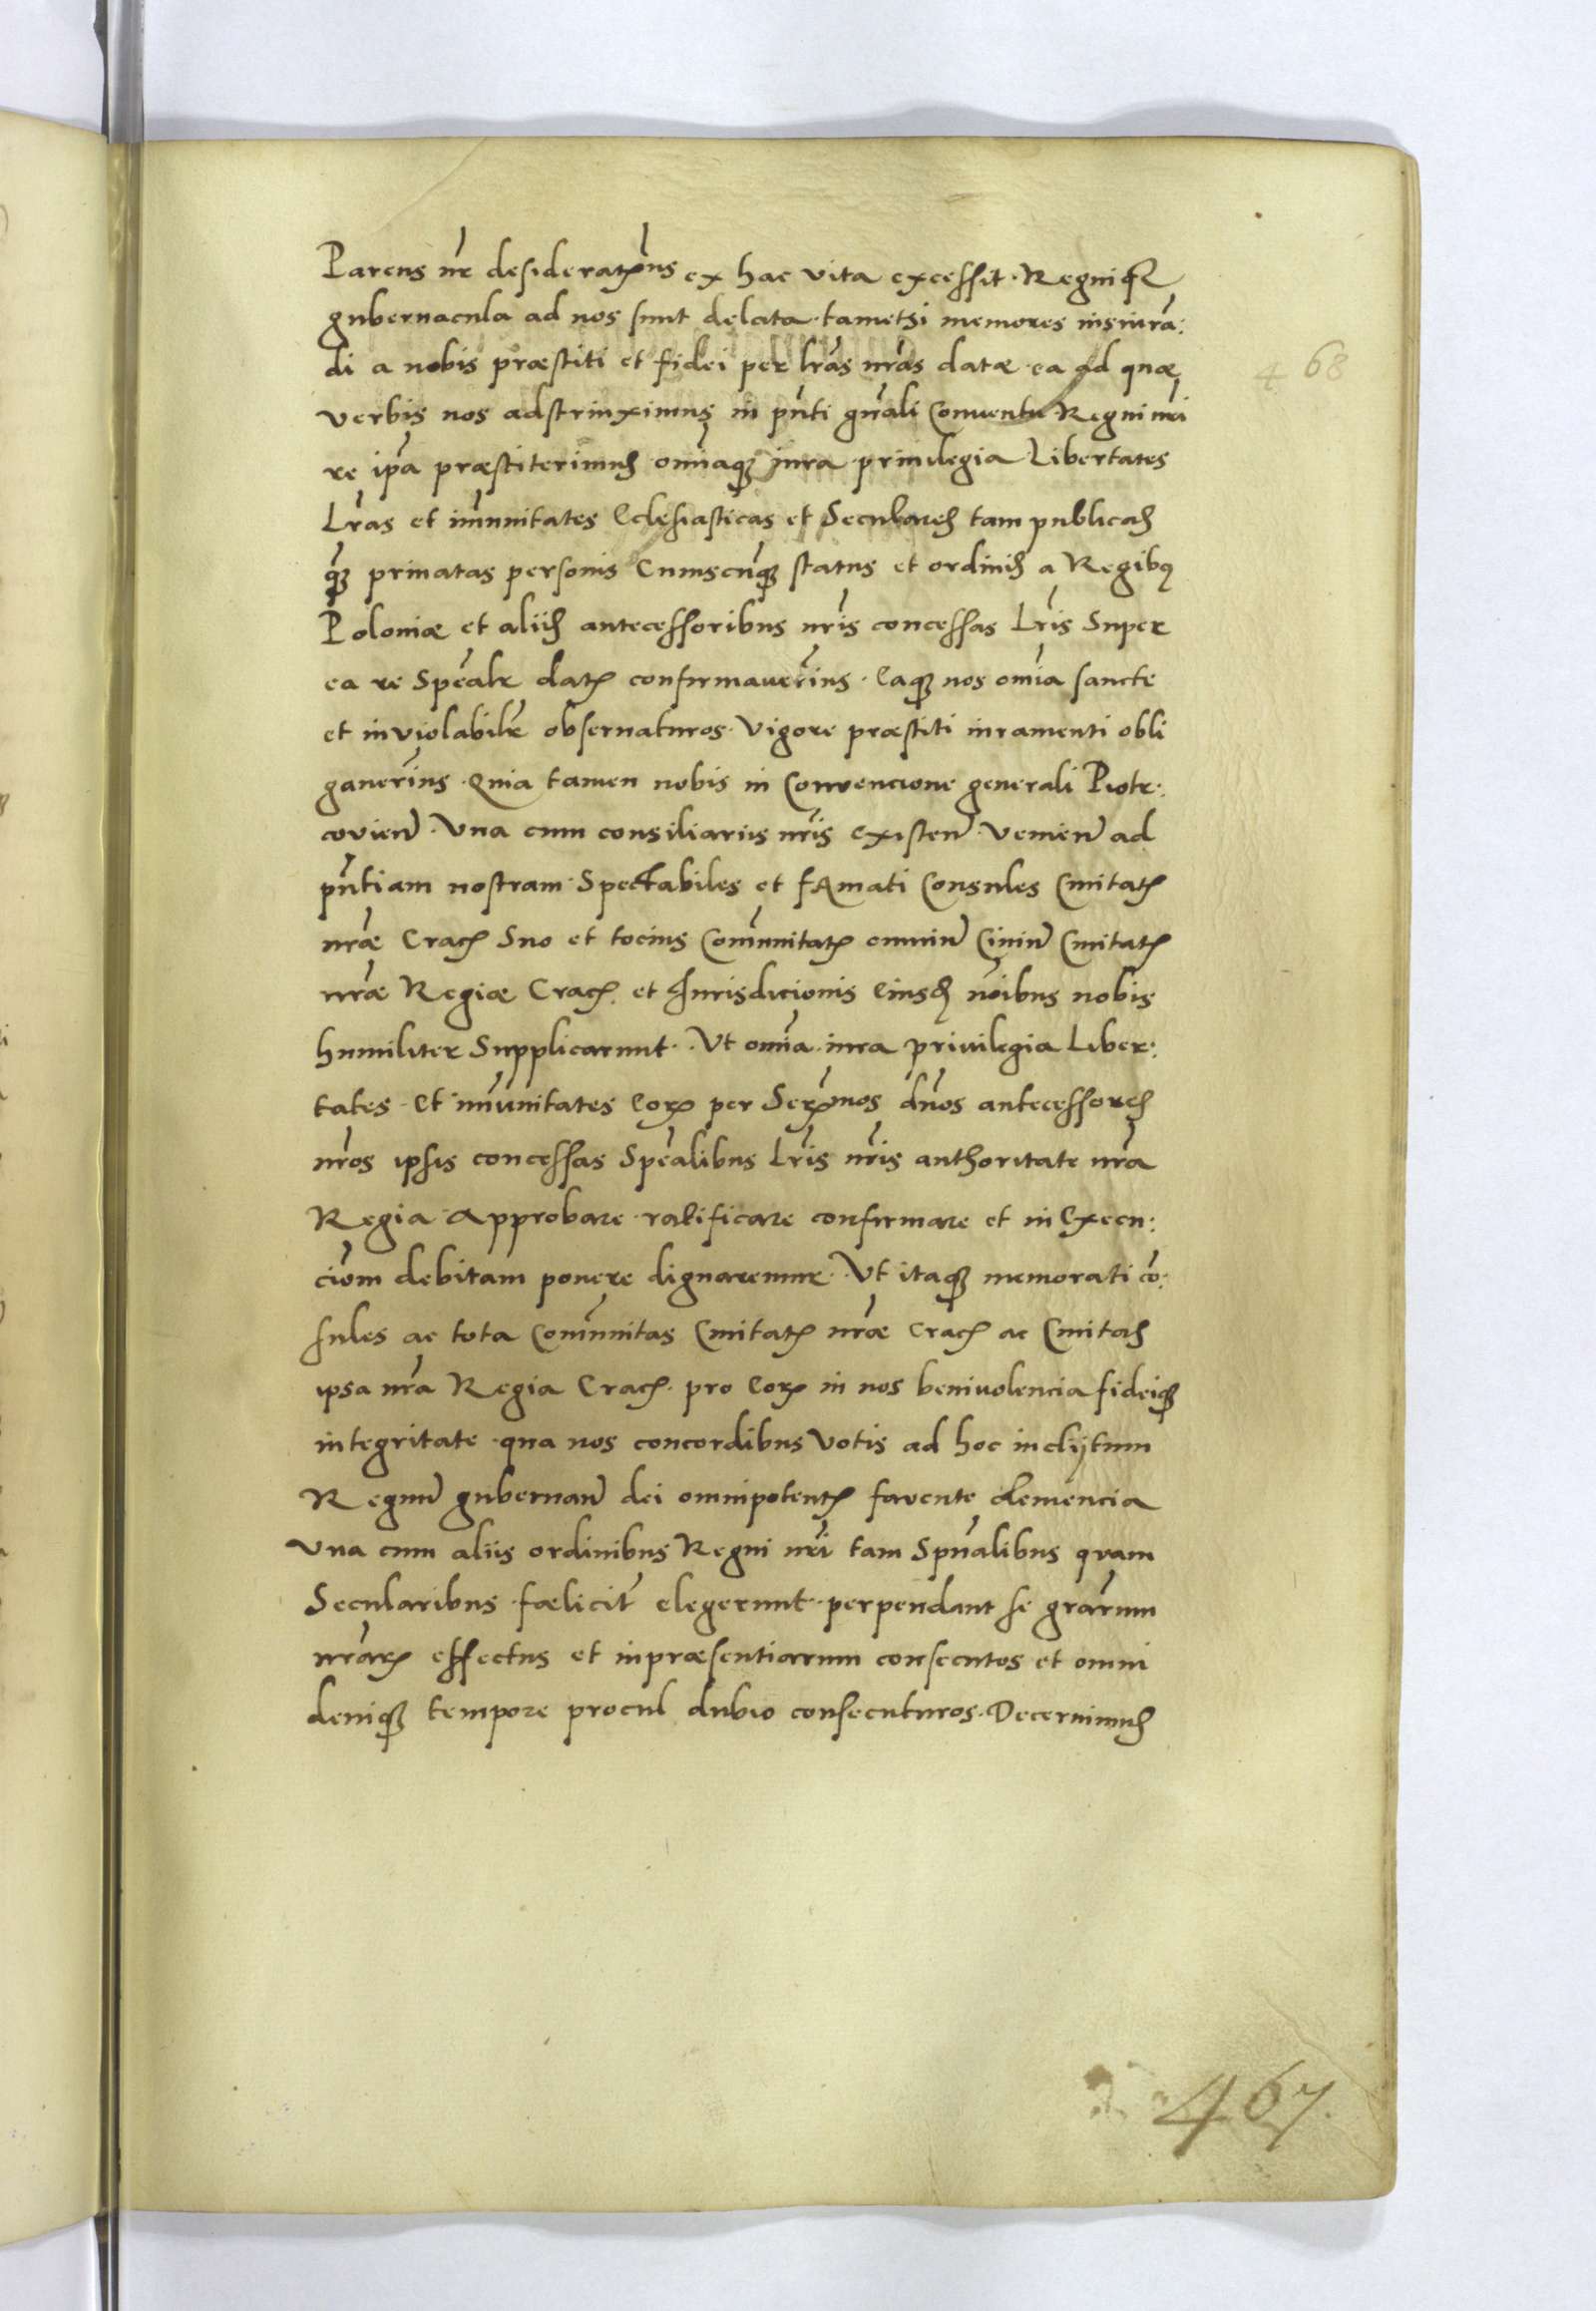 Parens nr̄ desideratꝫm̄us ex hac vita excessit · Regniqꝫ
gubernacula ad nos sunt delata · tametsi memores iusiurā:
di a nobis præstiti et fidei per lrās nrās datæ · ea ad quæ
verbis nos adstrinximus in pn̄ti gn̄ali Conuentu Regni nrī
re ip̄a præstiterimus omn̄iaqꝫ iura priuilegia Libertates
Lrās et im̄unitates Ecclesiasticas et Seculares tam publicas
qꝫ priuatas personis Cuiuscūqꝫ status et ordinis a Regibꝰ
Poloniæ et aliis antecessoribus nrīs concessas Lrīs Super
ea re Spēalr datꝫ confirmauerīus · Eaqꝫ nos omīa sancte
et inviolabilr̄ obseruaturos · Vigore præstiti iuramenti obli
gauerīus · Quia tamen nobis in Convencione generali Piotr:
covien̄ · Vna cum consiliariis nrīs existen̄ · Venien̄ ad
pn̄tiam nostram · Spectabiles et fAmati Consules Ciuitatꝫ
nrǣ Cracꝫ Suo et tocius Com̄unitatꝫ omniū Ciuiū Ciuitatꝫ
nrǣ Regiæ Cracꝫ et Jurisdicionis Eiusdꝫ nōibus nobis
humiliter Supplicarunt · Vt omīa iura priuilegia Liber:
tates · Et im̄unitates Eorꝫ per Serꝫmos dn̄os antecessores
nrōs ipsis concessas Spēalibus Lrīs nrīs authoritate nrā
Regia · Approbare · ratificare confirmare et in Execu:
ciōm debitam ponere dignaremur · Vt itaqꝫ memorati cō:
sules ac tota Com̄unitas Ciuitatꝫ nrǣ Cracꝫ ac Ciuitas
ipsa nrā Regia Cracꝫ · pro Eorꝫ in nos beniuolencia fideiqꝫ
integritate · qua nos concordibus Votis ad hoc inclijtum
Regnū gubernan̄ dei omnipotentꝫ favente clemencia
Vna cum aliis ordinibus Regni nrī tam Spūalibus qvam
Secularibus · fœlicit̄ elegerunt · perpendant se grārum
nrārꝫ effectus et inpræsentiarum consecutos et omni
deniqꝫ tempore procul dubio consecuturos · Decernimus
4 68
467.